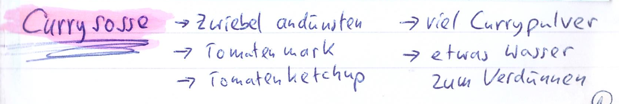 Currysosse
→ Zwiebel andünsten
→ Tomatenmark
→ Tomatenketchup
→ viel Currypulver
→ etwas Wasser
zum Verdünnen